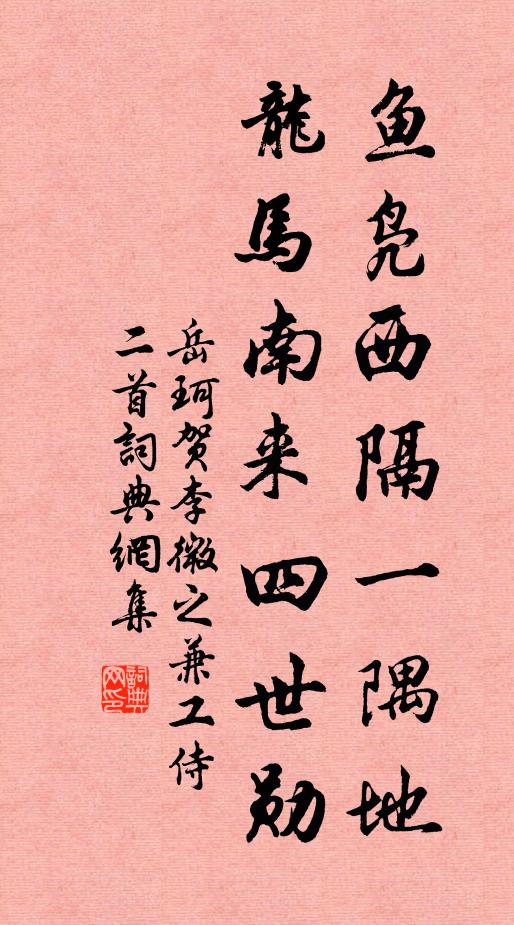 鱼凫西隔一隅地
龍馬南来四世勋
岳珂贺李微之兼工侍
二首詞典網集
詞典网印